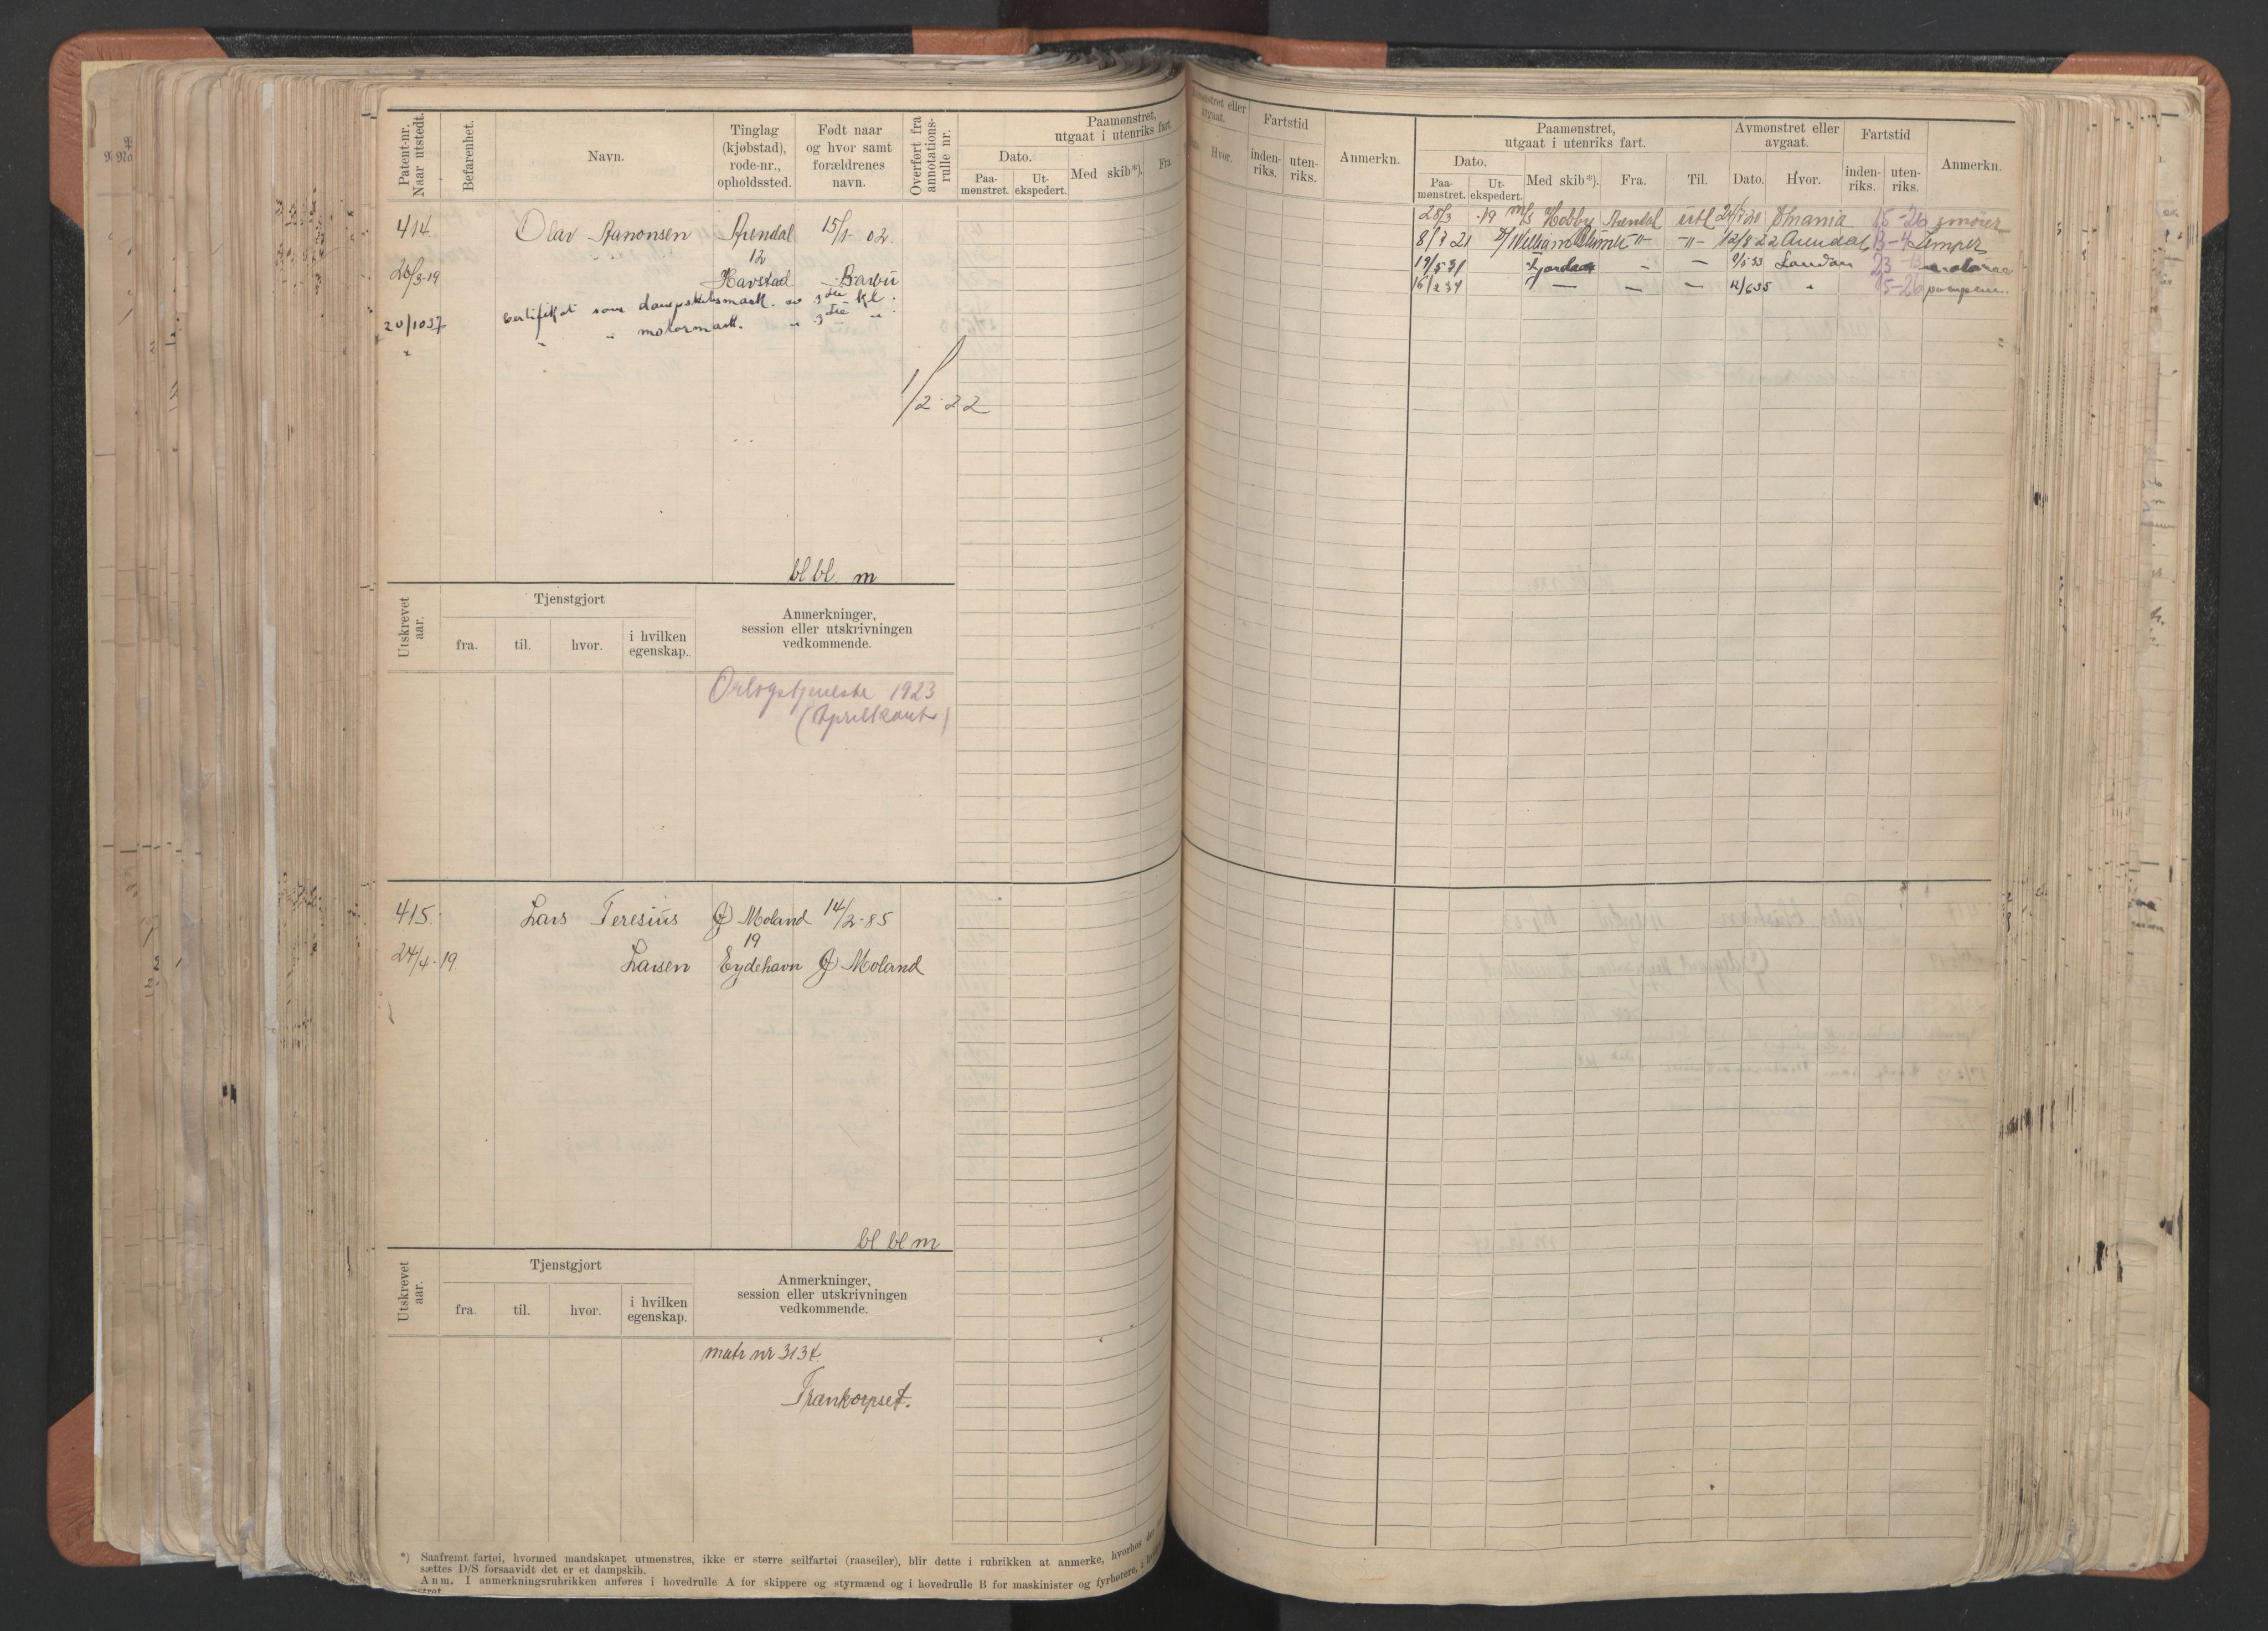 Patent-nr. Naar utstedt.
Befarenhet.
Navn.
Tinglag (kjøbstad), rode-nr., opholdssted.
Født naar og hvor samt forældrenes navn.
Overført fra annotations-rulle nr.
Paamønstret, utgaat i utenriks fart.
Dato.
Paa-mønstret.
Ut-ekspedert.
Med skib*).
Fra.
414. Olav Aanonsen Arendal 15/1- 02.
12
28/3-19 Havstad Barbu
20/10 37 Certifikat som dampskibsmask. av 3die kl.
" " " motormask. " 3die "
1/2-22
bl bl m
Utskrevet aar.
Tjenstgjort
fra. til. hvor. i hvilken egenskap.
Anmerkninger, session eller utskrivningen vedkommende.
Orlogstjeneste 1923
415. Lars Teresius Ø Moland 14/2-85
19
24/4-19. Larsen Eydehavn Ø Moland
bl bl m
Utskrevet aar.
Tjenstgjort
fra. til. hvor. i hvilken egenskap.
Anmerkninger, session eller utskrivningen vedkommende.
matr nr 3134
*) Saafremt fartøi, hvormed mandskapet utmønstres, ikke er større seilfartøi (raaseiler), blir dette i rubrikken at anmerke, hvorhos
sættes D/S forsaavidt det er et dampskib.
Anm. I anmerkningsrubrikken anføres i hovedrulle A for skippere og styrmænd og i hovedrulle B for maskinister og fyrbøtere,
Hvor.
Fartstid
inden-riks. uten-riks.
Anmerkn.
Paamønstret, utgaat i utenriks fart.
Avmønstret eller avgaat.
Fartstid
Anmerkn.
Dato.
Paa-mønstret. Ut-ekspedert. Med skib*). Fra. Til. Dato. Hvor. inden-riks. uten-riks.
28/3 -19 M/S Hobby Arendal utl Khania 15-26 smører
8/7 21 William -"- -"- 12/8 22 Arendal 13-4 Lemper
19/5 31 - - 9/5 33 London 23
16/2 34 " — — — 12/6 35 " 15-26